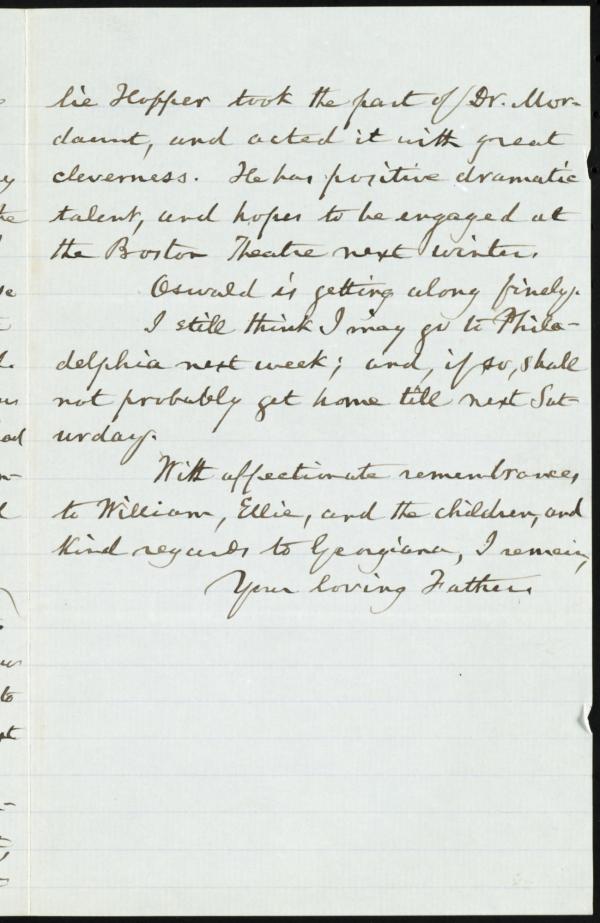 lie Hopper took the part of Dr. Mor-
daunt, and acted it with great
cleverness. He has positive dramatic
talent, and hopes to be engaged at
the Boston Theatre next winter.
Oswald is getting along finely.
I still think I may go to Phila-
delphia next week; and, if so, shall
not probably get home till next Sat-
urday.
With affectionate remembrances
to William, Ellie, and the children, and
kind regards to Georgiana, I remain,
Your loving Father.